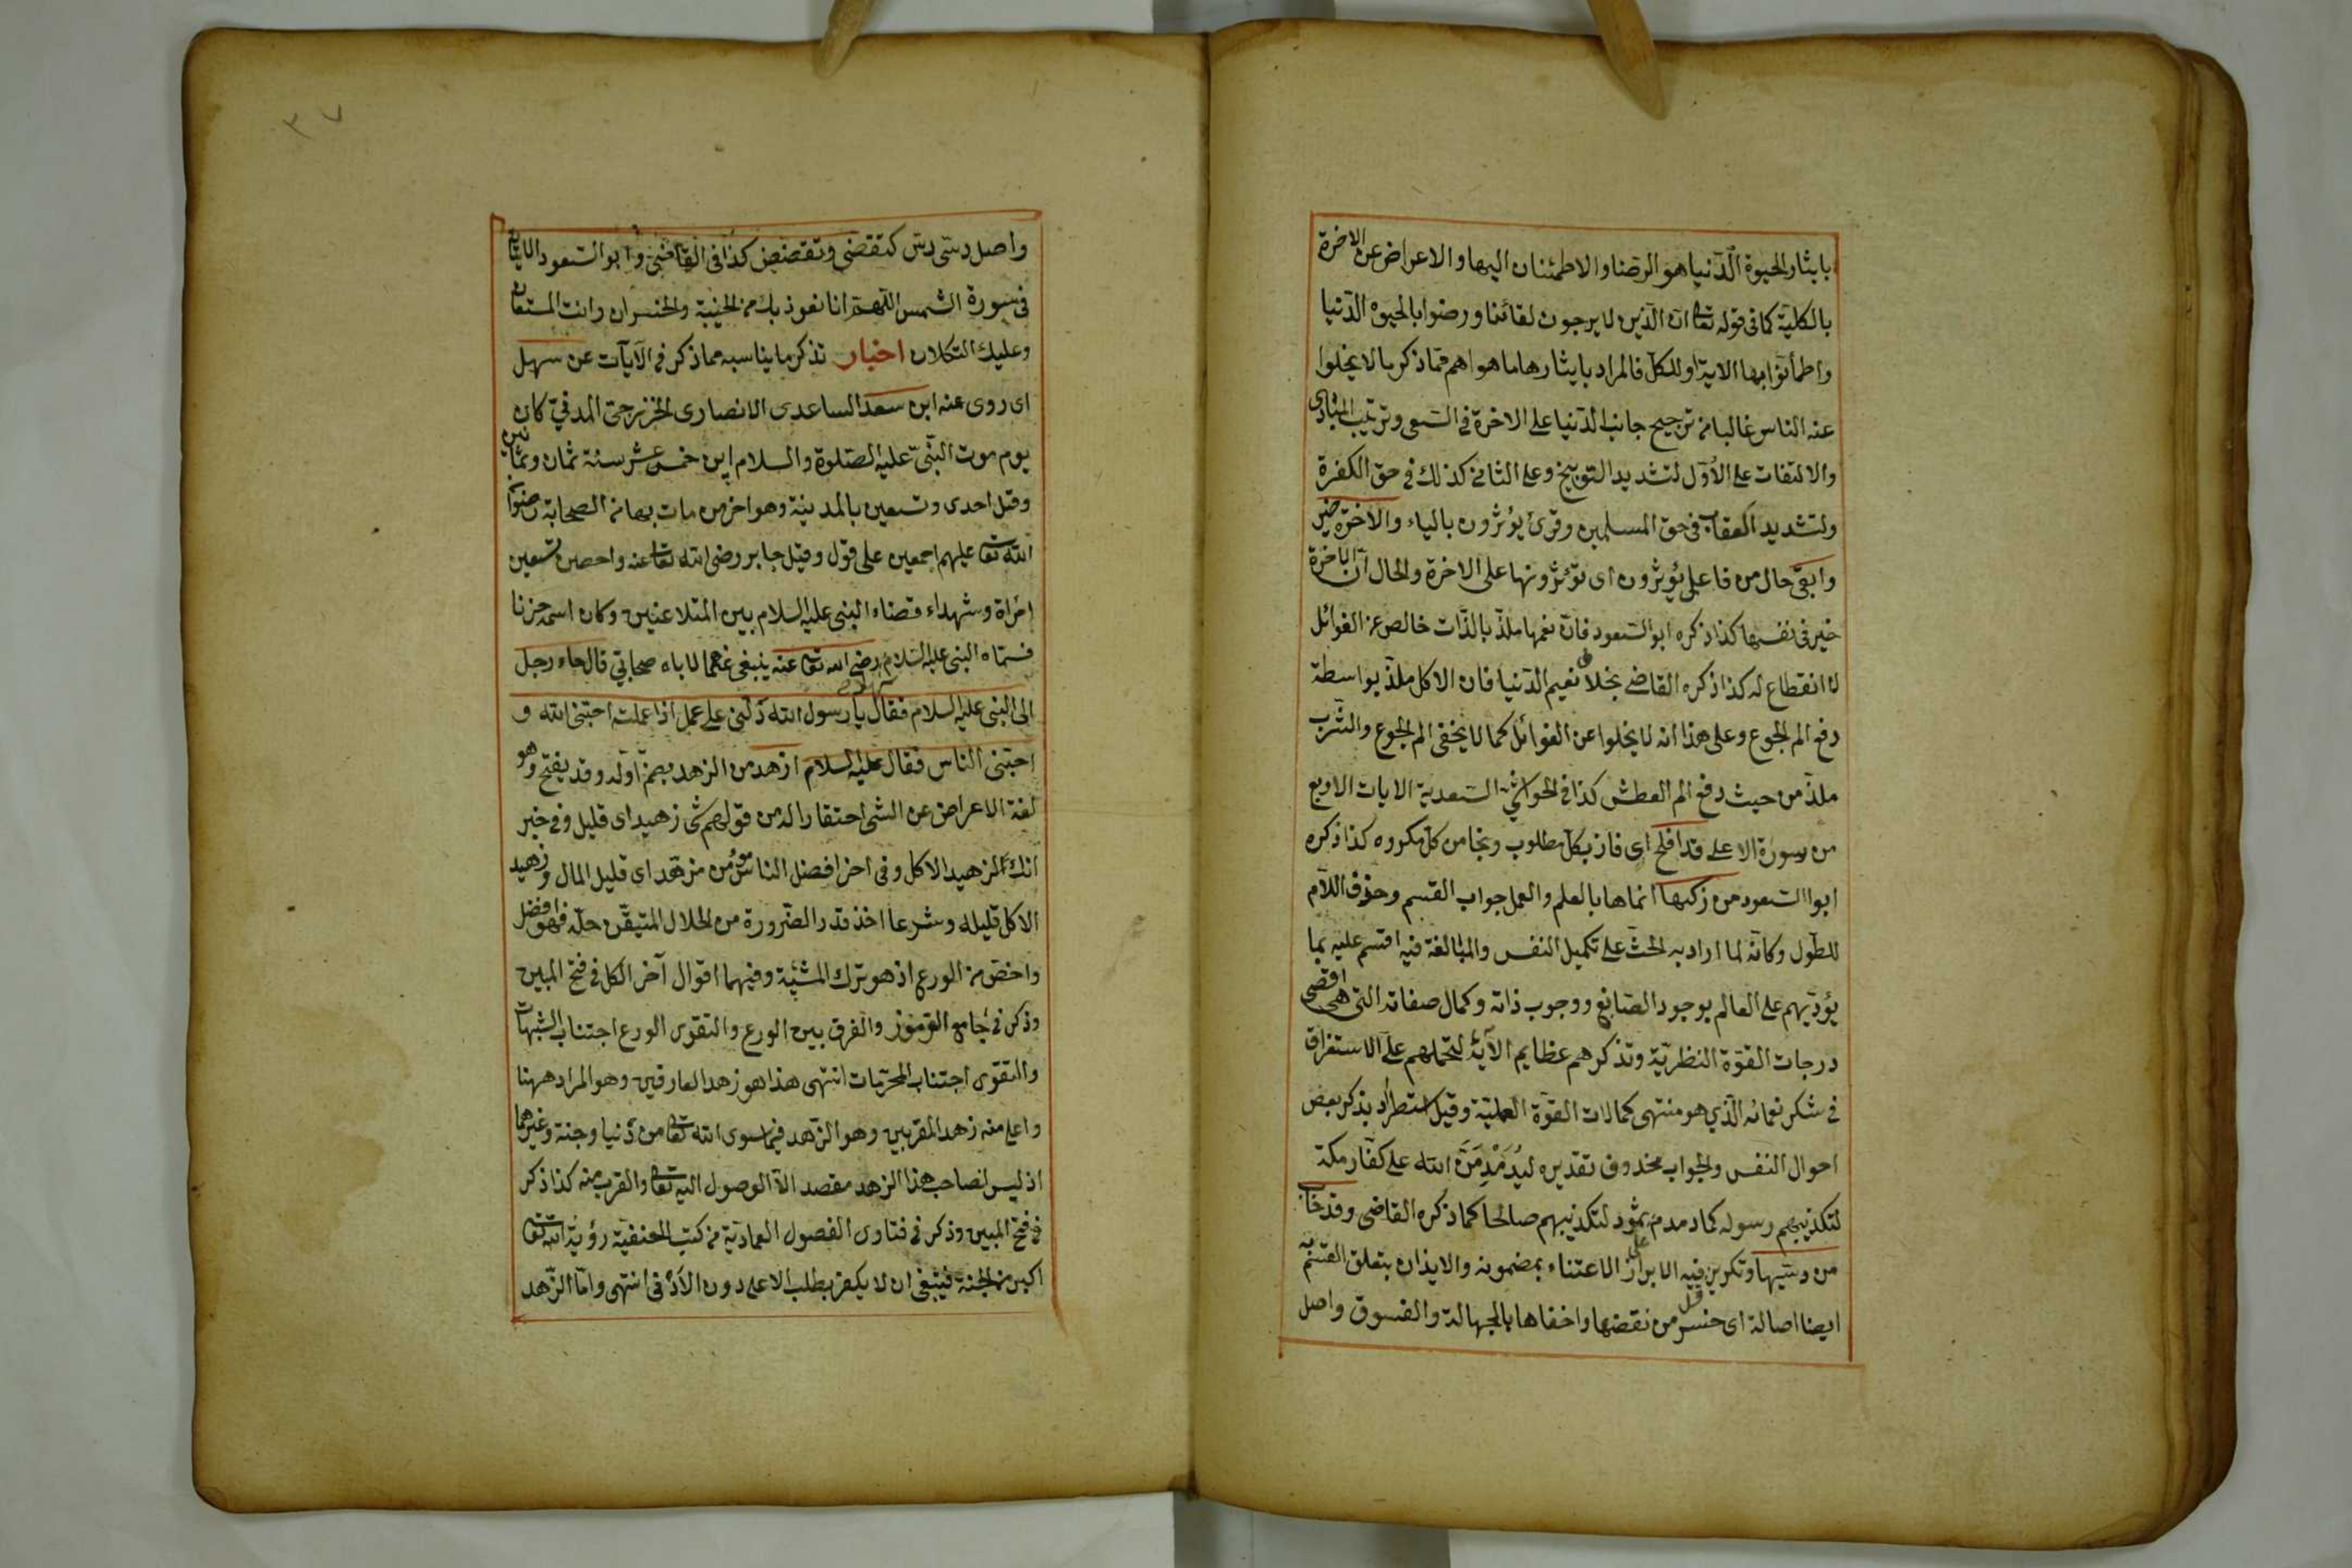 بايثار الحيوة الدنيا هو الرضا والاطمئنان اليها والاعراض عن الاخرة
بالكلية كما فى قوله تعا ان الذين لا يرجون لقائنا ورضوا بالحيوة الدنيا
واطمأنوا بها الاية او للكل فالمراد بايثارها ما هو اهم مما ذكر ما لا يخلوا
عنه الناس غالبا من ترجيح جانب الدنيا على الاخرة فى السعى وترتيب المبادى
والالتفات على الاول لتشديد التوبيخ وعلى الثانى كذلك فى حق الكفرة
ولتشديد العقاب فى حق المسلمين وقرئ يؤثرون بالياء والآخرة خير
وابقى حال من فاعل يؤثرون اى تؤثرونها على الاخرة والحال ان الاخرة
خير فى نفسها كذا ذكره ابو السعود فان نعمها ملذ بالذات خالص عن الغوائل
لا انقطاع له كذا ذكره القاضى بخلاف نعيم الدنيا فان الاكل ملذ بواسطة
دفع الم الجوع وعلى هذا انه لا يخلوا عن الغوائل كما لا يخفى الم الجوع والشرب
ملذ من حيث دفع الم العطش كذا فى الحواشى السعدية الايات الاربع
من سورة الاعلى قد افلح اى فاز بكل مطلوب ونجا من كل مكروه كذا ذكره
ابوا السعود من زكيها انماها بالعلم والعمل جواب القسم وحذف اللام
للطول وكأنه لما اراد به الحث على تكميل النفس والمبالغة فيه اقسم عليه بما
يؤديهم على العالم بوجود الصانع ووجوب ذاته وكمال صفاته التى هى اقصى
درجات القوة النظرية وتذكرهم عظايم الآية لتحملهم على الاستغراق
فى شكر نعمائه الذي هو منتهى كمالات القوة العملية وقيل استطراد بذكر بعض
احوال النفس والجواب محذوف تقديره ليُدَمْدِمَنَّ الله على كفار مكة
لتكذيبهم رسوله كما دمدم ثمود لتكذيبهم صالحا كما ذكره القاضى وقد خاب
من دسيها وتكرير قد فيه لابراز الاعتناء بمضمونه والايذان بتعلق القسم به
ايضا اصالة اى خسر من نقضها واخفاها بالجهالة والفسوق واصل
٣٧
واصل دسى دسس كتقضى وتقضض كذا فى القاضى وابو السعود الايتان
فى سورة الشمس اللهم انا نعوذ بك من الخيبة والخسران وانت المستعان
وعليك التكلان اخبار تذكر ما يناسبه مما ذكر فى الآيات عن سهل
اى روى عنه ابن سعد الساعدى الانصارى الخزرجى المدنى كان
يوم موت النبى عليه الصلوة والسلام ابن خمس عشر سنة ثمان وثمانين
وقيل احدى وتسعين بالمدينة وهو اخر من مات بها من الصحابة رضوان
الله تعا عليهم اجمعين على قول وقيل جابر رضى الله تعا عنه واحصن تسعين
امرأة وشهداء قضاء النبى عليه السلام بين المتلاعنين وكان اسمه حزنا
فسماه النبى عليه السلام سهلا رضى الله تعا عنه ينبغى عنهما لاباه صحابي قال جاء رجل
الى النبى عليه السلام فقال يا رسول الله دلنى على عمل اذا عملت احبنى الله و
احبنى الناس فقال عليه السلام ازهد من الزهد بضم اوله وقد يفتح وهو
لغة الاعراض عن الشى احتقارا له من قولهم شى زهيد اى قليل وفى خبر
انك لزهيد الاكل وفى اخر افضل الناس مؤمن مزهد اى قليل المال وزهيد
الاكل قليله وشرعا اخذ قدر الضرورة من الحلال المتيقن حله فهو افضل
واخص من الورع اذ هو ترك المشتبه وفيهما اقوال آخر الكل فى فتح المبين
وذكر فى جامع الرموز والفرق بين الورع والتقوى الورع اجتناب الشبهات
والتقوى اجتناب المحرمات انتهى هذا هو زهد العارفين وهو المراد ههنا
واعلى منه زهد المقربين وهو الزهد فيما سوى الله تعا من دنيا وجنة وغيرهما
اذ ليس لصاحب هذا الزهد مقصد الا الوصول اليه تعا والقرب منه كذا ذكر
فى فتح المبين وذكر فى فتاوى الفصول العمادية من كتب الحنفية رؤية الله تعا
اكبر من الجنة فينبغى ان لا يكفر بطلب الاعلى دون الأدنى انتهى واما الزهد